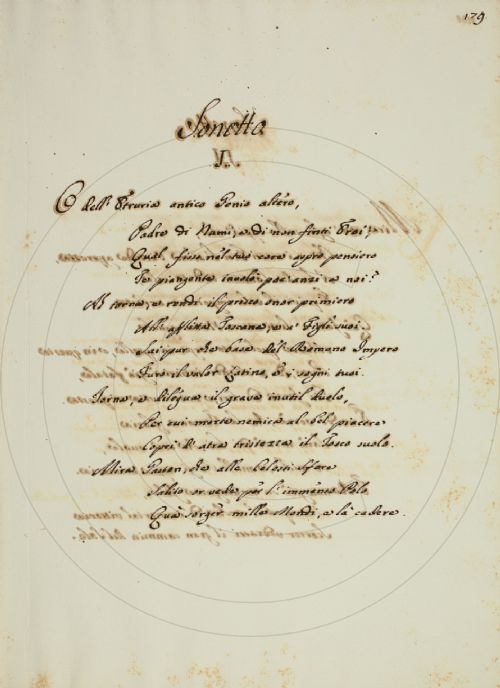 179.
Sonetto
VI.
O dell' Etruria antico Genio altero,
Padre di Numi, e di non finti Eroi;
Qual fisso nel tuo core aspro pensiero
Te piangente involò poc' anzi a noi?
A torna, e rendi il prisco onor primiero
All' afflitta Toscana, e a' Figli suoi
Sai pur che base del Romano Impero
Furo il valor Latino, e i segni tuoi.
Torna, e dilegua il grave inutil duolo,
Per cui morte nemica al bel piacere
Coprì d' atra tristezza il Tosco suolo.
Mira Gaston, che alle Celesti sfere
Salito or vede per l' immenso Polo
Quà sorger mille Mondi, e là cadere.